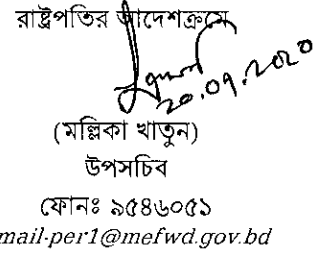 রাষ্ট্রপতির আদেশক্রমে
20.09.2020
(মল্লিকা খাতুন)
উপসচিব
ফোনঃ ৯৫৪৬০৫১
mail-per1@mefwd.gov.bd